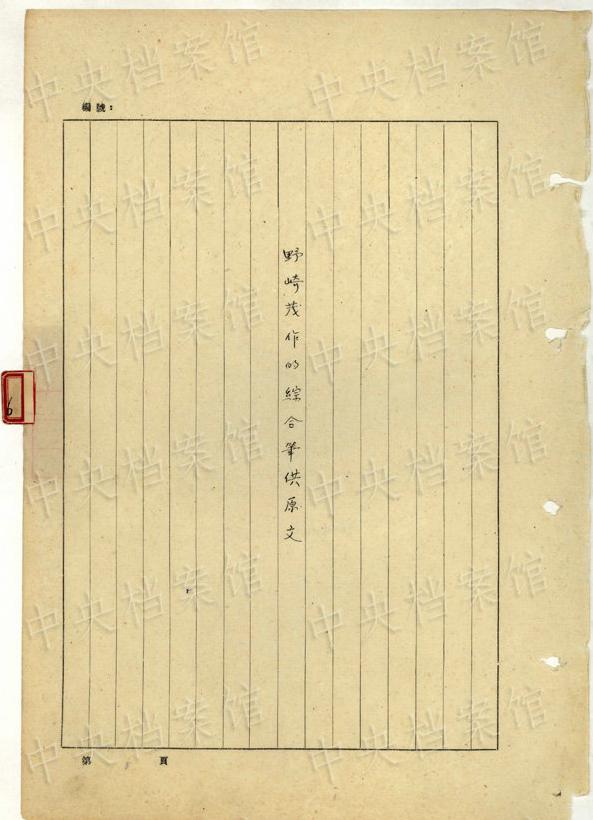 編號：
野崎茂作的綜合筆供原文
6
第 頁
中央档案馆
中央档案馆
中央档案馆
中央档案馆
中央档案馆
中央档案馆
中央档案馆
中央档案馆
中央档案馆
中央档案馆
中央档案馆
中央档案馆